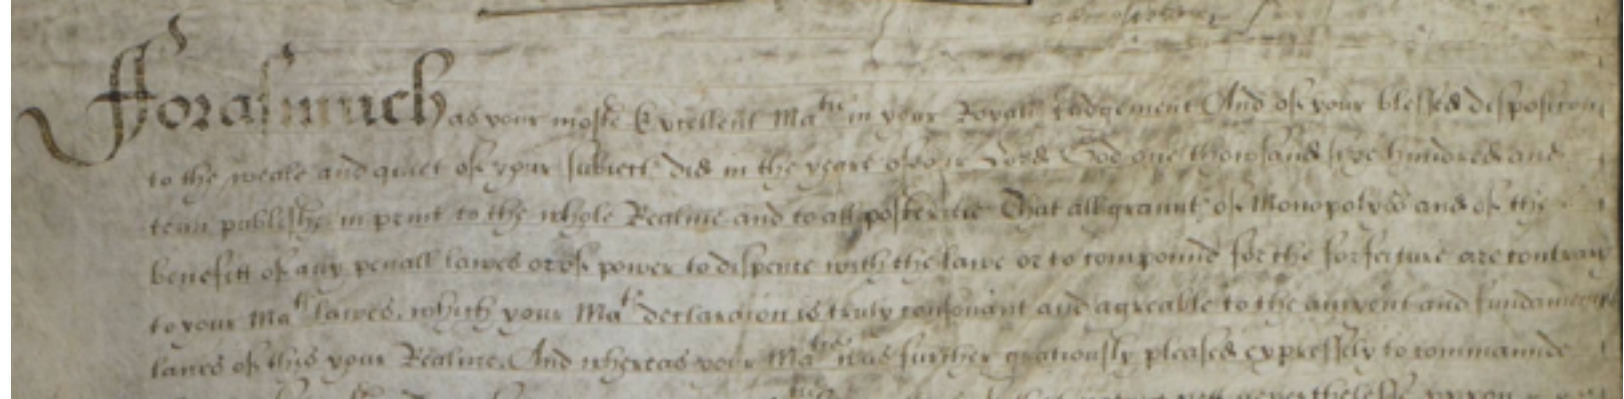 Fforasmuch as your moste Excellent Ma^tie in your Royall Judgement And of your blessed disposicon
to the weale and quiet of your subiect did in the yeare of our Lord God one thousand sixe hundred and
tenn publishe in print to the whole Realme and to all posteritie That all graunt of Monopolyes and of the
benefitt of any penall lawes or of power to dispence with the lawe or to compound for the forfeiture are contrary
to your Ma^ts lawes, which your Ma^ts declaracion is truly consonant and agreable to the auncient and fundamentall
lawes of this your Realme. And whereas your Ma^tie was further graciously pleased expressely to commaunde
neverthelesse uppon